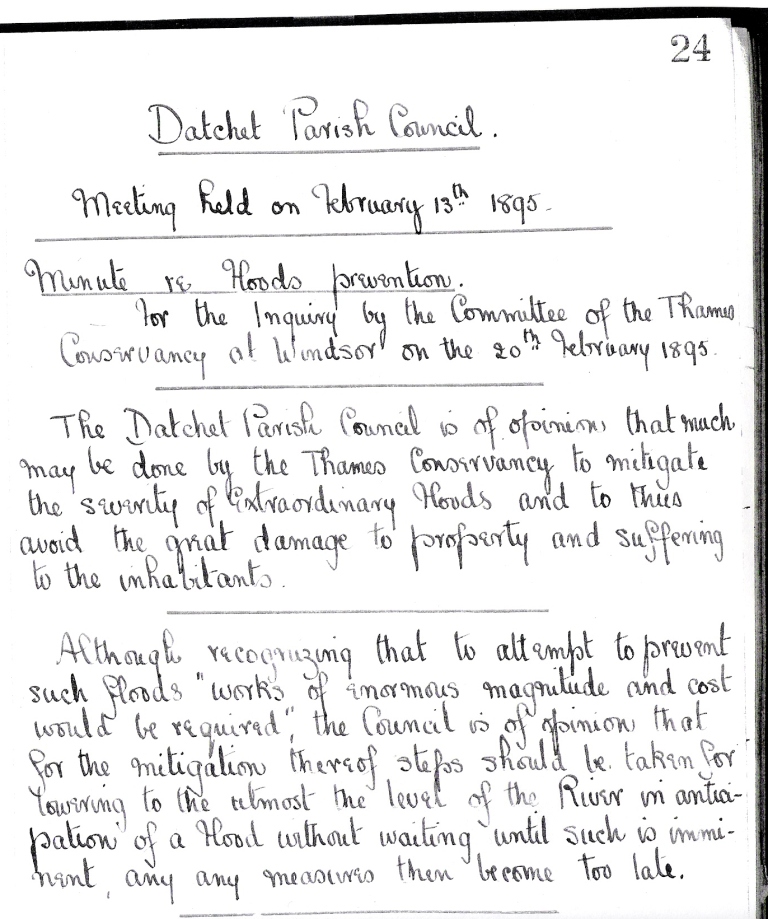 24
Datchet Parish Council.
Meeting held on February 13th 1895.
Minute re Floods prevention.
For the Inquiry by the Committee of the Thames
Conservancy at Windsor on the 20th February 1895.
The Datchet Parish Council is of opinion, that much
may be done by the Thames Conservancy to mitigate
the severity of Extraordinary Floods and to thus
avoid the great damage to property and suffering
to the inhabitants.
Although recognizing that to attempt to prevent
such floods "works of enormous magnitude and cost
would be required", the Council is of opinion that
for the mitigation thereof steps should be taken for
lowering to the utmost the level of the River in antici-
pation of a Flood without waiting until such is immi-
nent, any any measures then become too late.